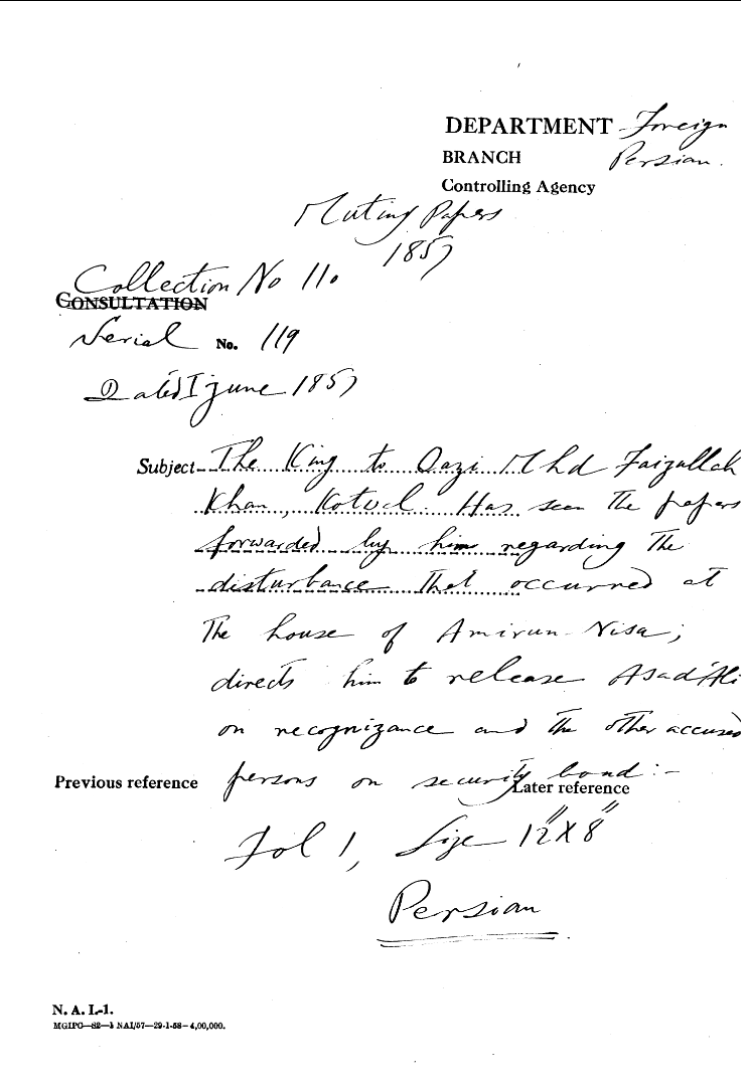 DEPARTMENT Foreign
BRANCH Persian.
Controlling Agency
Mutiny Papers
1857
Collection No 110
CONSULTATION
Serial No. 119
Dated 1 June 1857
Subject The King to Qazi Mhd Faizullah
Khan, Kotwal. Has seen the papers
forwarded by him regarding the
disturbance that occurred at
the house of Amirun-Nisa;
directs him to release Asad Ali
on recognizance and the other accused
persons on security bond:-
Previous reference
Later reference
Fol 1, Size 12"X8"
Persian
N. A. I.-1.
MGIPC—82—1 NAI/57—29-1-58—4,00,000.